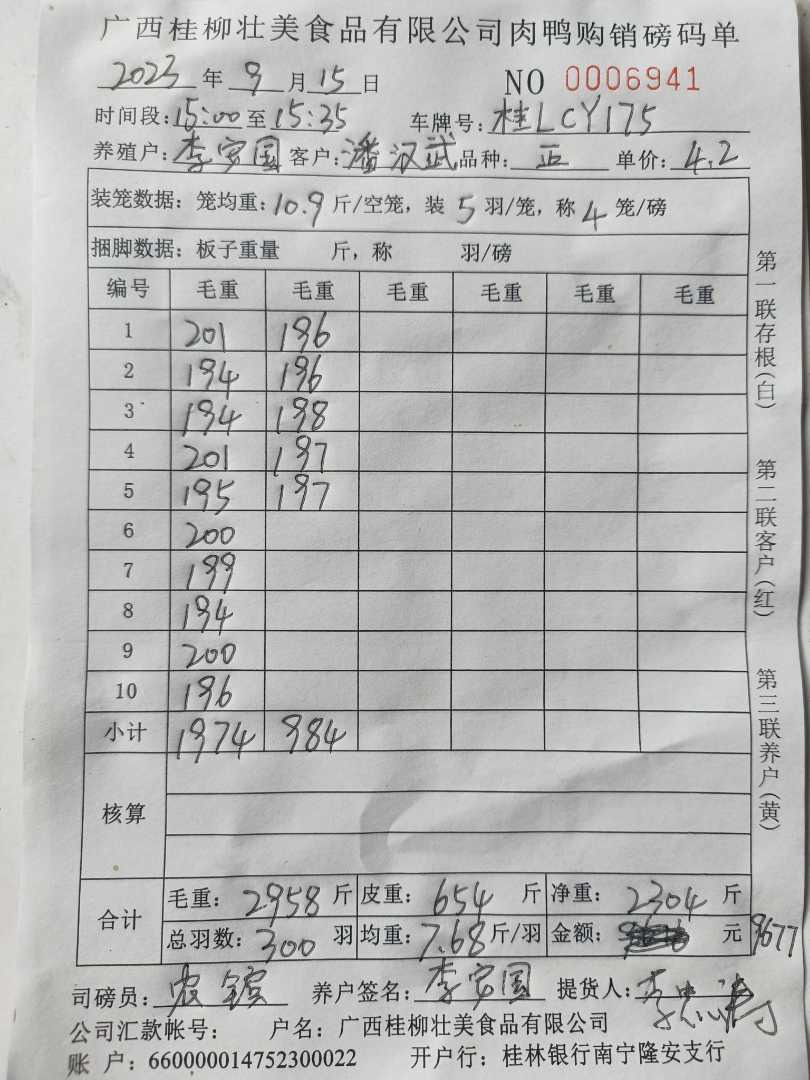 广西桂柳壮美食品有限公司肉鸭购销磅码单
2023 年 9 月 15 日 NO 0006941
时间段: 15:00 至 15:35 车牌号: 桂LCY175
养殖户: 李家国 客户: 潘汉武 品种: 正 单价: 4.2
装笼数据: 笼均重: 10.9 斤/空笼, 装 5 羽/笼, 称 4 笼/磅
捆脚数据: 板子重量 斤, 称 羽/磅
编号 毛重 毛重 毛重 毛重 毛重 毛重
1 201 196
2 194 196
3 194 198
4 201 197
5 195 197
6 200
7 199
8 194
9 200
10 196
小计 1974 984
核算
合计 毛重: 2958 斤 皮重: 654 斤 净重: 2304 斤
总羽数: 300 羽 均重: 7.68 斤/羽 金额: 元 9677
司磅员: 农 养户签名: 李家国 提货人: 李忠
公司汇款帐号: 户名: 广西桂柳壮美食品有限公司
账 户: 660000014752300022 开户行: 桂林银行南宁隆安支行
第一联存根(白)
第二联客户(红)
第三联养户(黄)